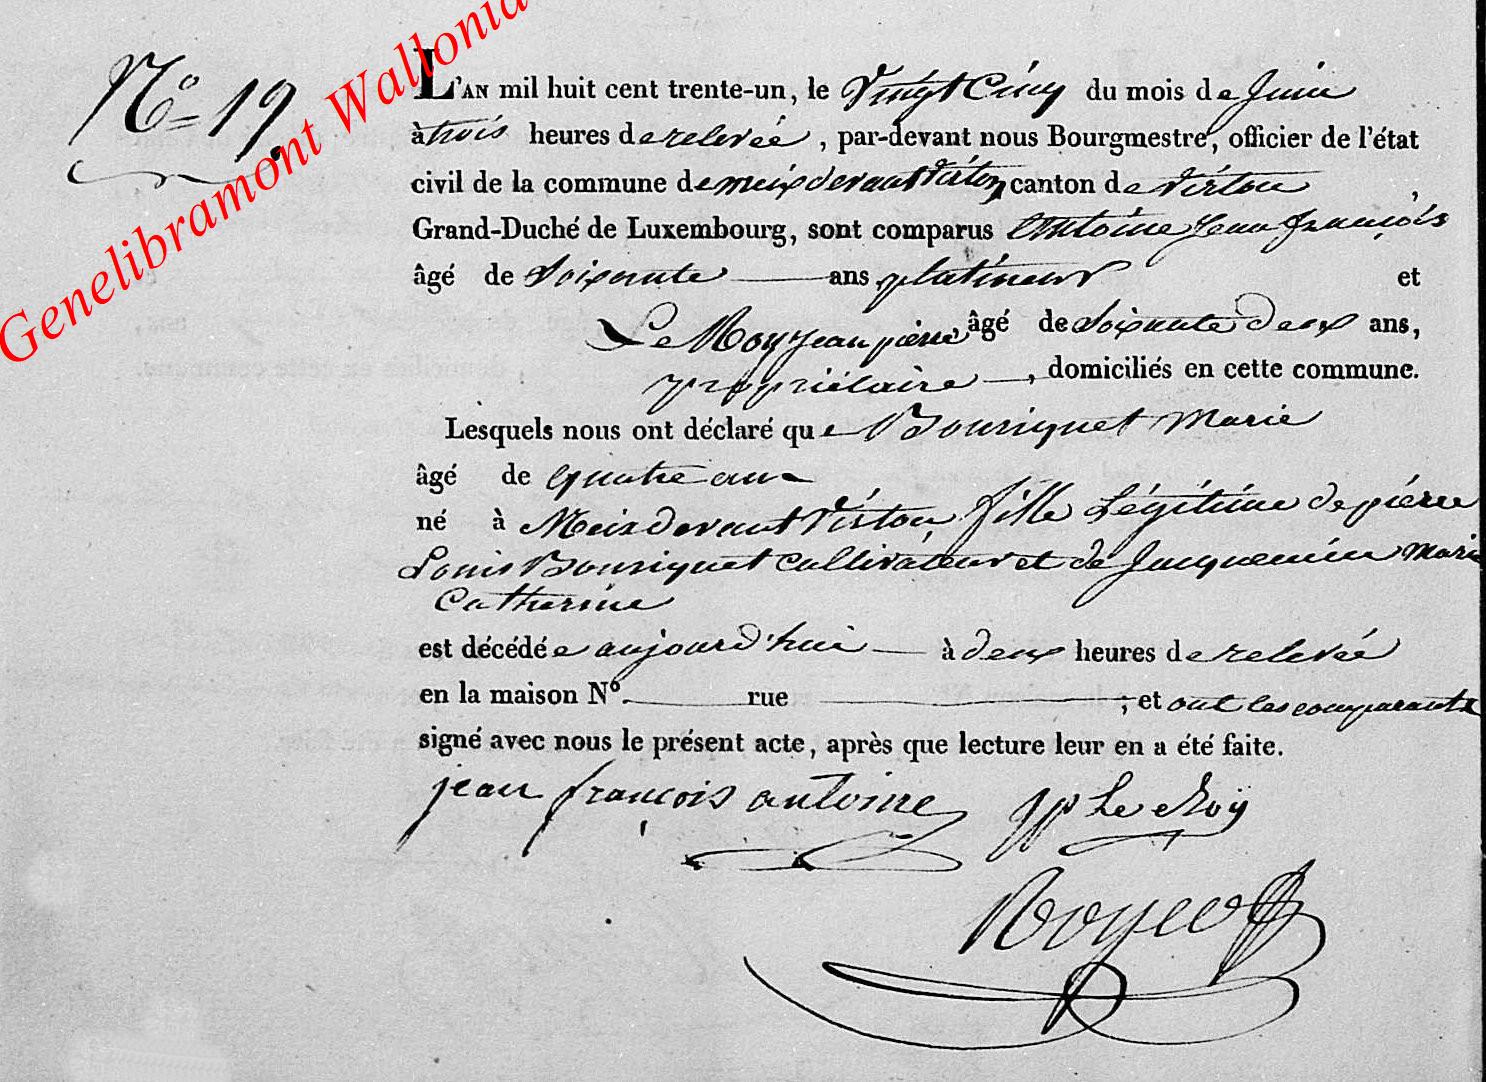 Genelibramont Wallonia
N.o 19
L'AN mil huit cent trente-un, le Vingt Cinq du mois de Juin
à trois heures de relevée, par-devant nous Bourgmestre, officier de l'état
civil de la commune de meix devant Virton canton de Virton,
Grand-Duché de Luxembourg, sont comparus Antoine Jean françois
âgé de Soixante ans platineur et
Le Roy Jean pierre âgé de Soixante Deux ans,
propriétaire, domiciliés en cette commune.
Lesquels nous ont déclaré que Bouriquet Marie
âgé de quatre ans
né à Meix devant Virton fille Légitime de pierre
Louis Bouriquet cultivateur et de Jacquemin Marie
Catherine
est décédée aujourd'hui à deux heures de relevée
en la maison No. rue ; et ont les comparants
signé avec nous le présent acte, après que lecture leur en a été faite.
jean françois antoine JP Le Roÿ